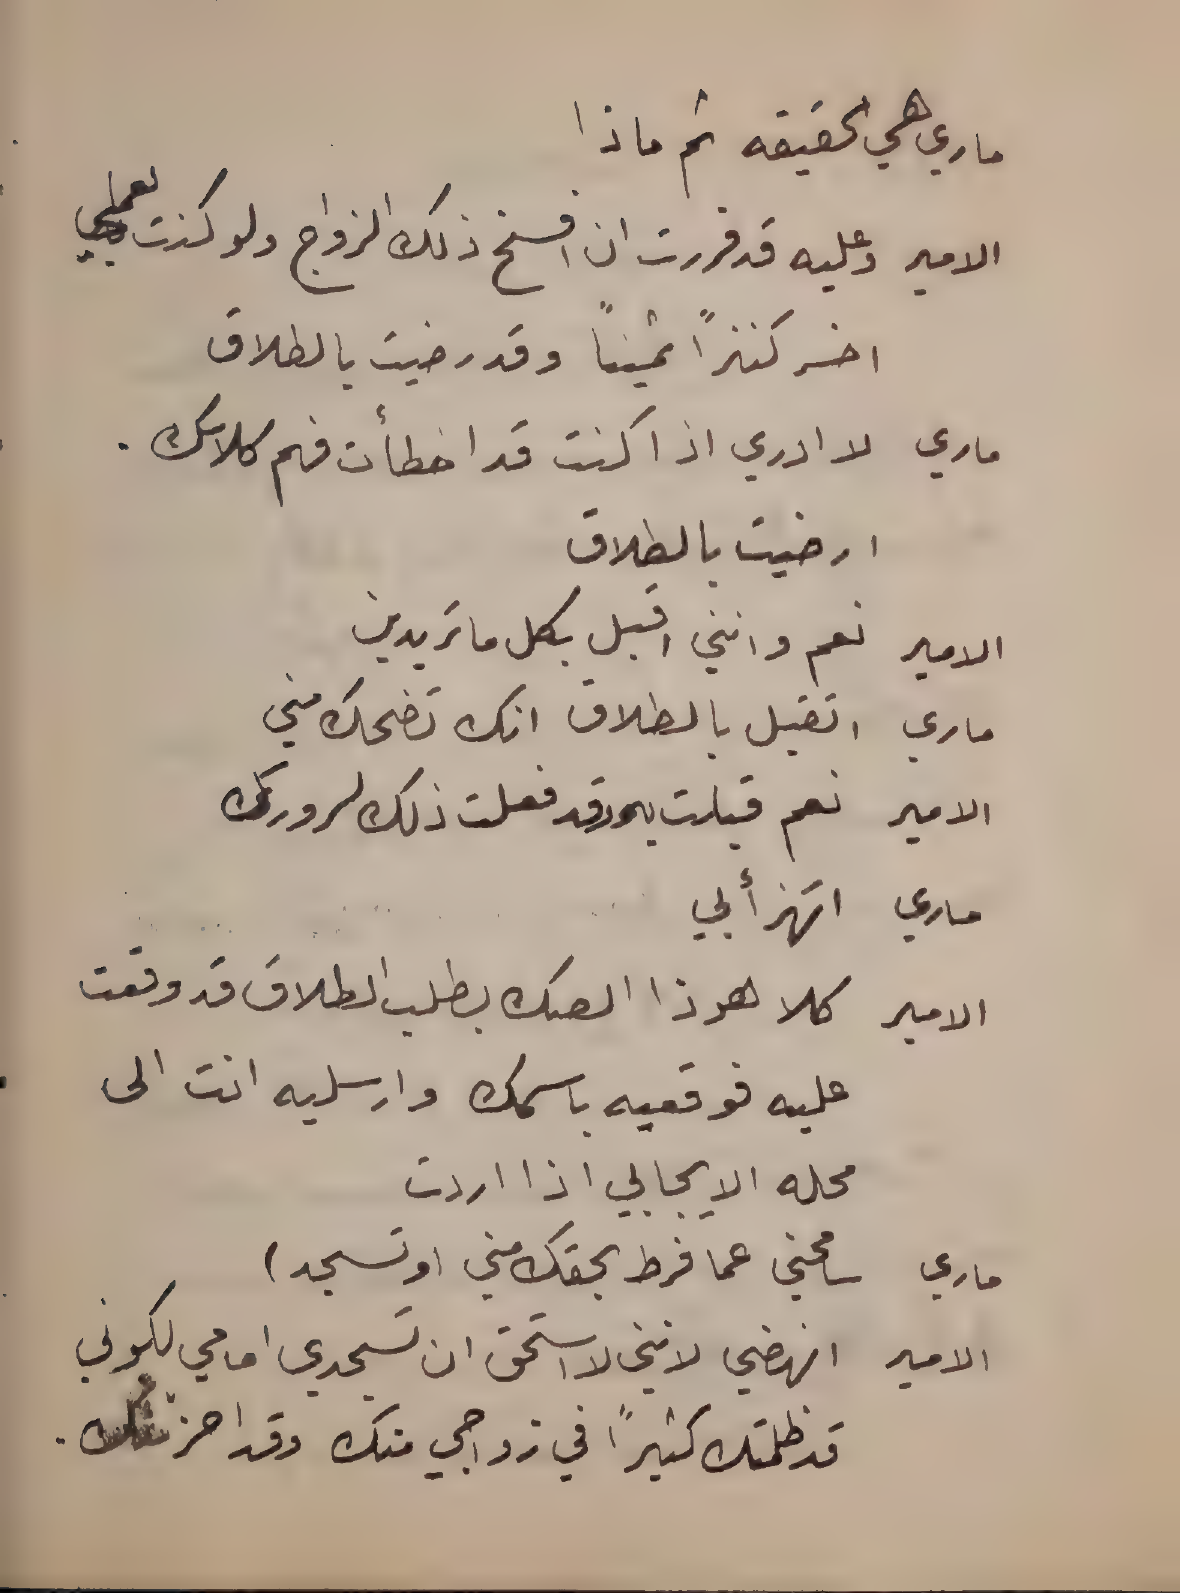 ماري هي الحقيقه ثم ماذا
الامير وعليه قد قررت ان افسخ ذلك الزواج ولو كنت بعملي
اخسر كنزاً ثميناً وقد رضيت بالطلاق
ماري لا ادري اذا كنت قد اخطأت فهم كلامك .
ارضيت بالطلاق
الامير نعم وانني اقبل بكل ما تريدين
ماري اتقبل بالطلاق انك تضحك مني
الامير نعم قبلت به وقد فعلت ذلك لسرورك
ماري اتهزأ بي
الامير كلا هوذا الصك بطلب الطلاق قد وقعت
عليه فوقعيه باسمك وارسليه انت الى
محله الايجابي اذا اردت
ماري سامحني عما فرط بحقك مني او تسجد )
الامير انهضي لانني لا استحق ان تسجدي امامي لكوني
قد ظلمتك كثيراً في زواجي منك وقد احزنتك .